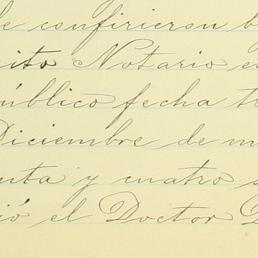 le confirieron b
ito Notario e
úblico fecha t
Diciembre de m
nta y cuatro s
ió el Doctor D